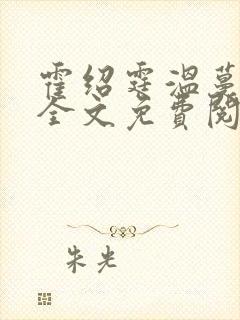 霍绍霆温蔓
全文免费阅
朱光